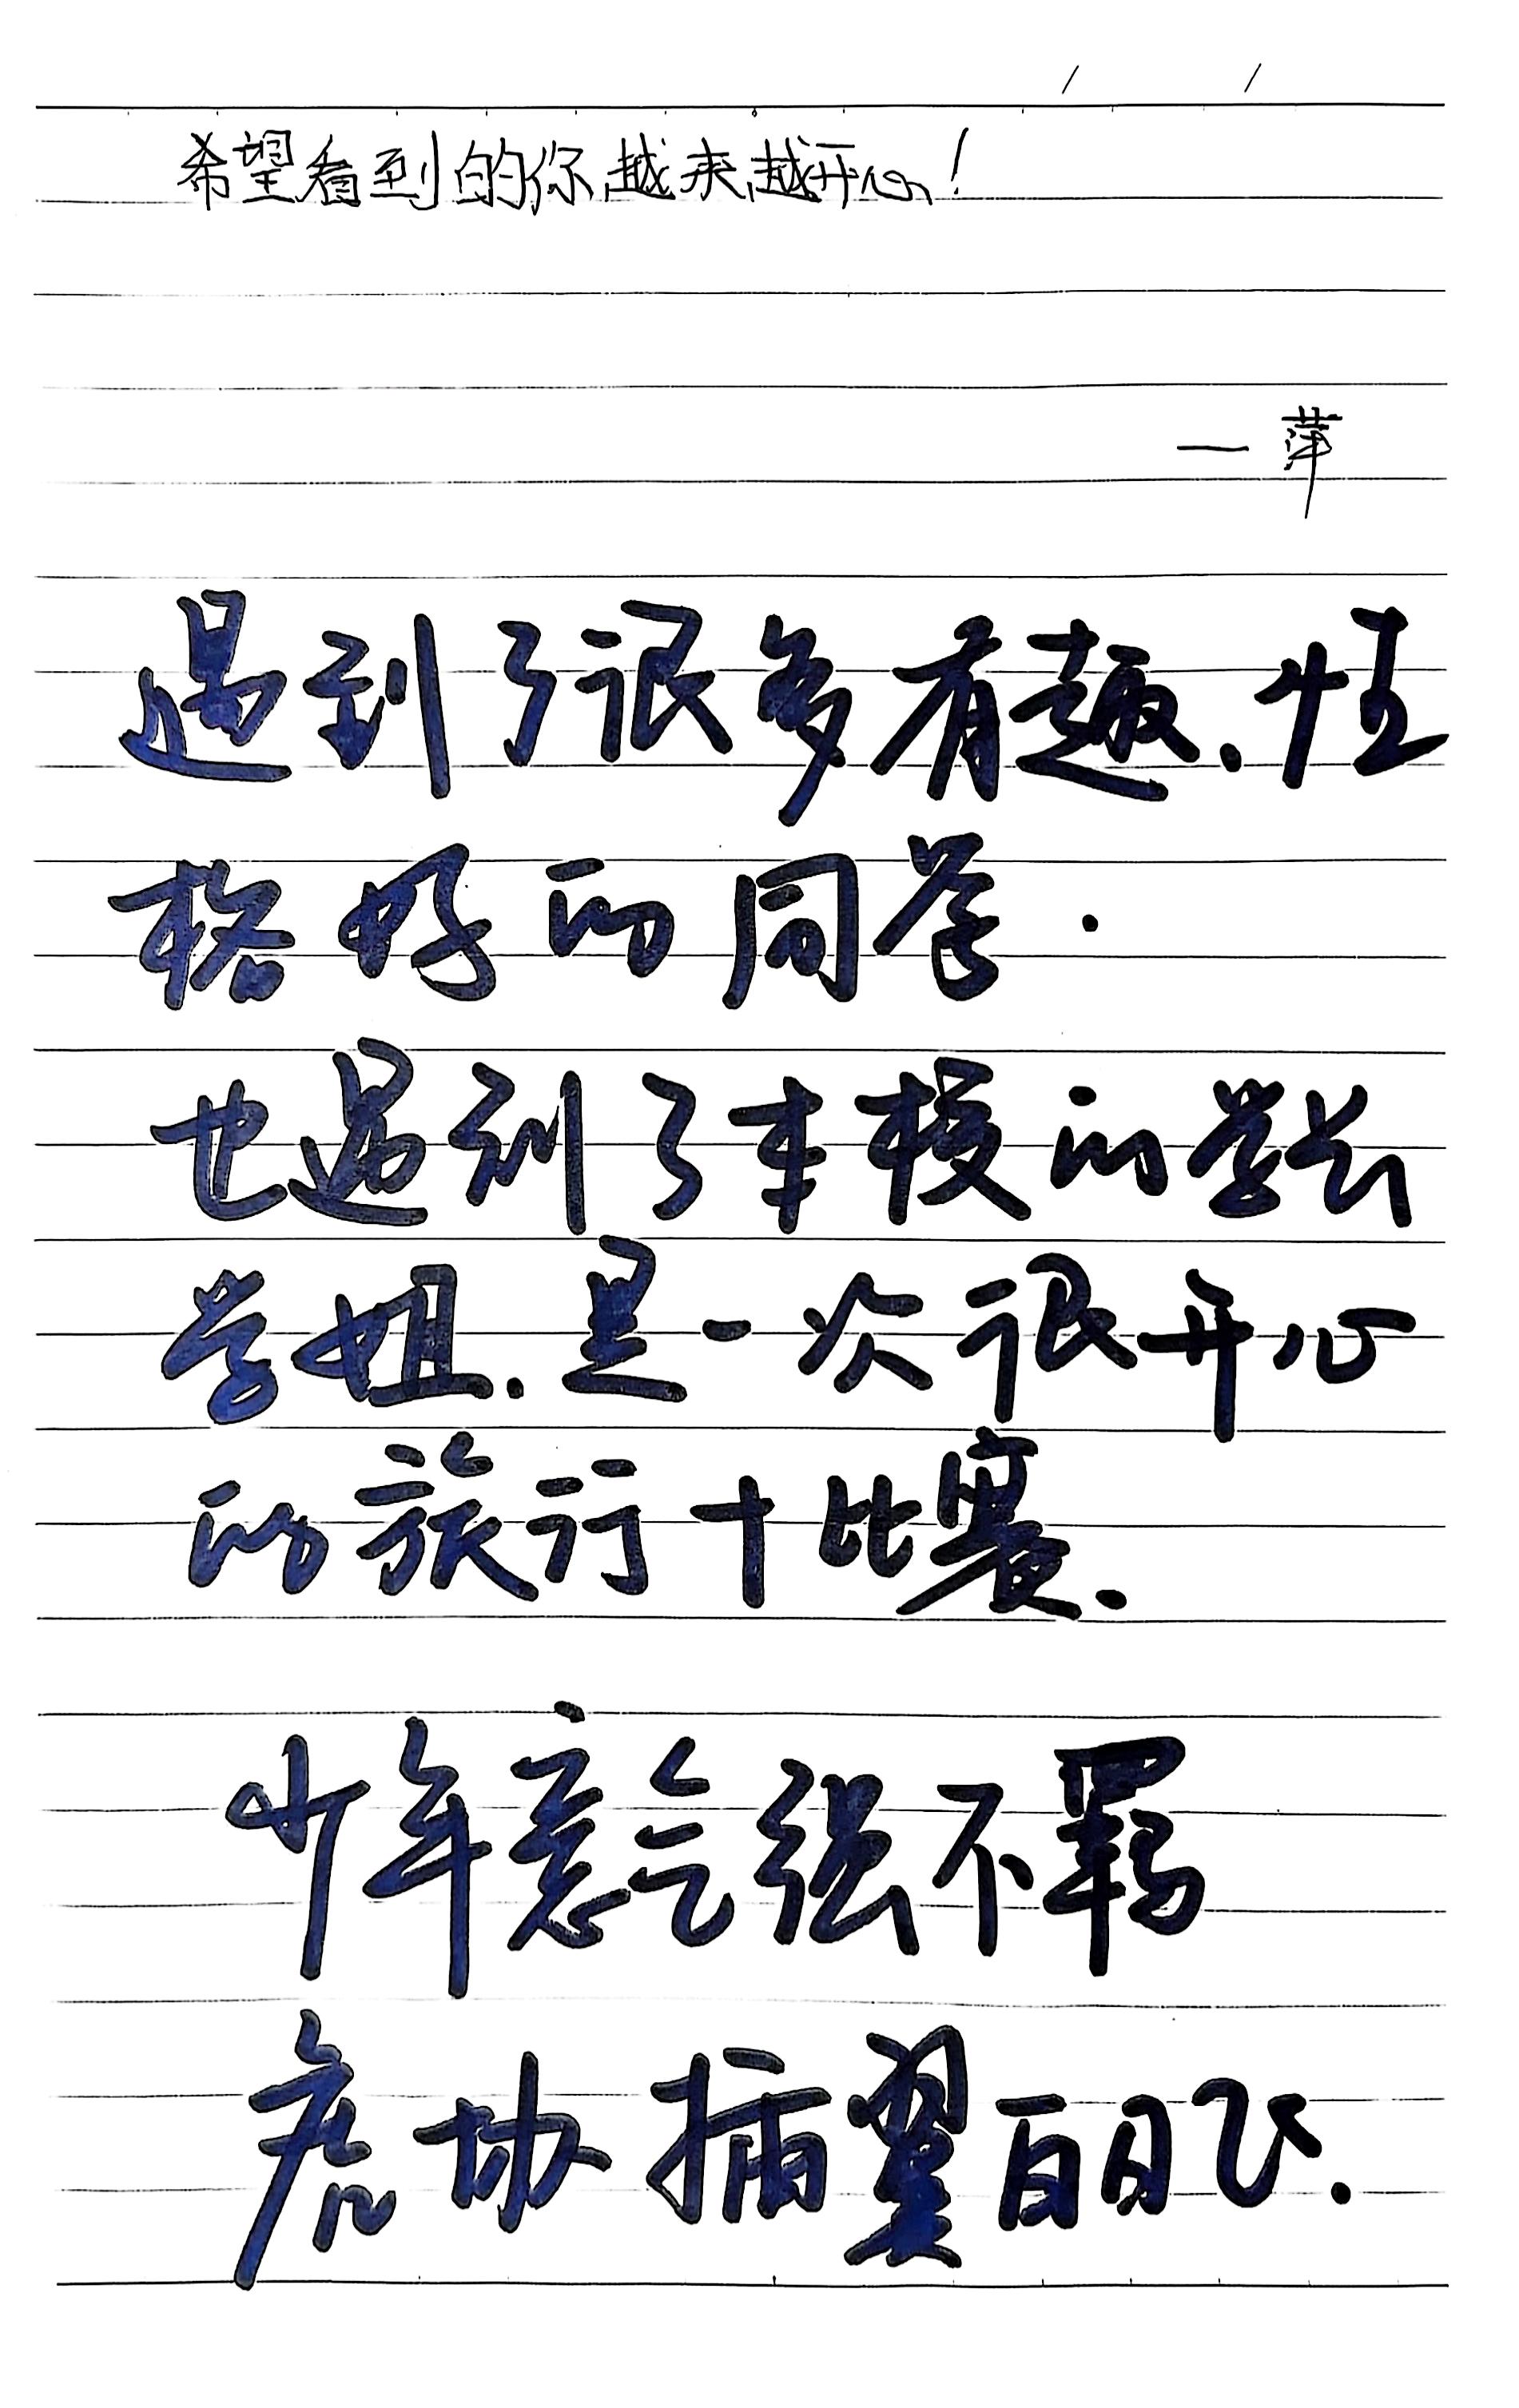 希望看到的你越来越开心！
—萍
遇到了很多有趣、性
格好的同学.
也遇到了本校的学长
学姐.是一次很开心
的旅行+比赛.
少年意气强不羁
虎协插翼白日飞.